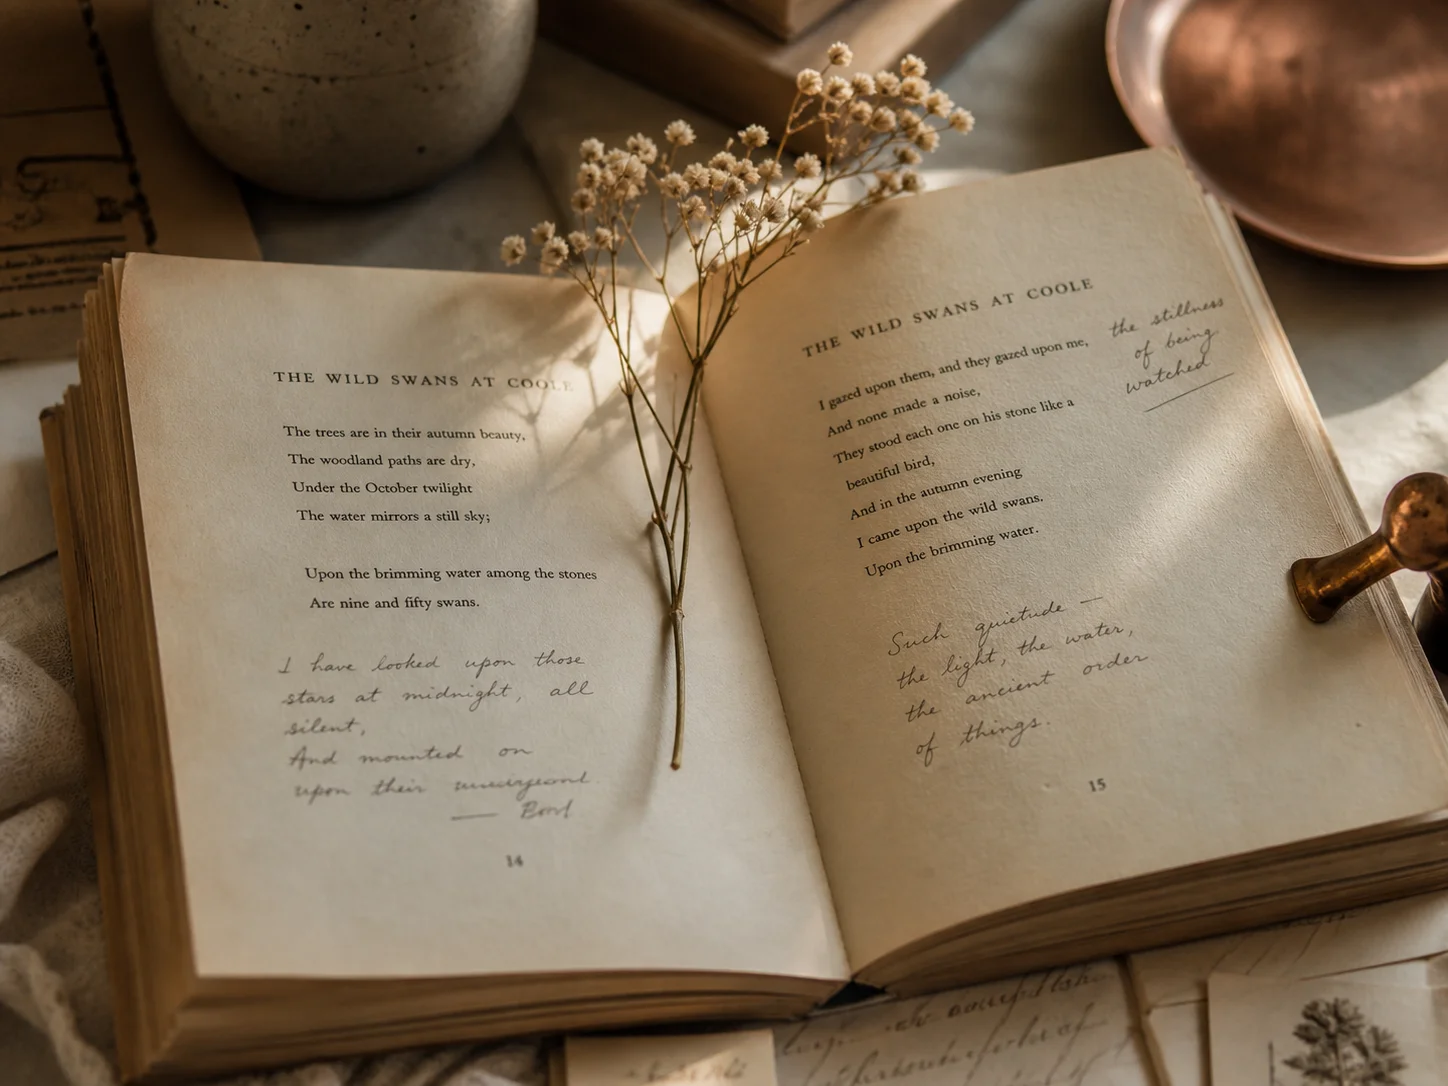 THE WILD SWANS AT COOLE
The trees are in their autumn beauty,
The woodland paths are dry,
Under the October twilight
The water mirrors a still sky;
Upon the brimming water among the stones
Are nine and fifty swans.
I have looked upon those
stars at midnight, all
silent,
And mounted on
upon their
14
THE WILD SWANS AT COOLE
I gazed upon them, and they gazed upon me,
And none made a noise,
They stood each one on his stone like a
beautiful bird,
And in the autumn evening
I came upon the wild swans.
Upon the brimming water.
the stillness
of being
watched
Such quietude —
the light, the water,
the ancient order
of things.
15